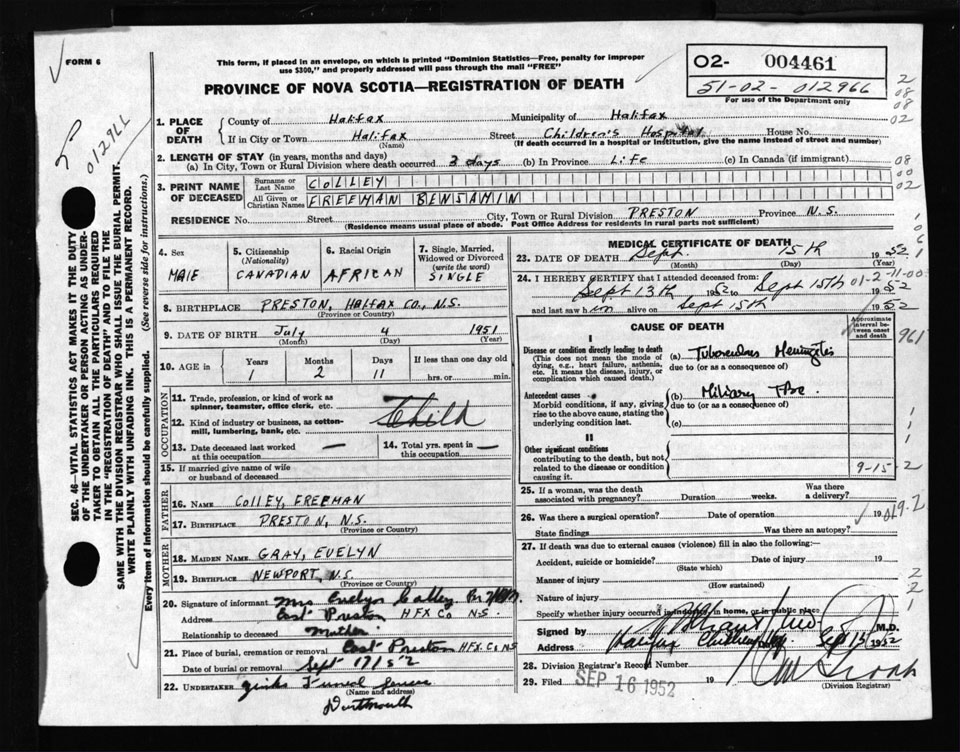 FORM 6
This form, if placed in an envelope, on which is printed "Dominion Statistics—Free, penalty for improper
use $300," and properly addressed will pass through the mail "FREE"
PROVINCE OF NOVA SCOTIA—REGISTRATION OF DEATH
O2- 004461
51-02-012966
For use of the Department only
012966
2
08
08
02
1. PLACE OF DEATH
County of Halifax Municipality of Halifax
If in City or Town Halifax Street Children's Hospital House No.
(Name) (If death occurred in a hospital or institution, give the name instead of street and number)
2. LENGTH OF STAY (in years, months and days)
(a) In City, Town or Rural Division where death occurred 3 days (b) In Province Life (c) In Canada (if immigrant)
08
00
02
3. PRINT NAME OF DECEASED
Surname or Last Name COLLEY
All Given or Christian Names FREEMAN BENJAMIN
RESIDENCE No. Street City, Town or Rural Division PRESTON Province N.S.
(Residence means usual place of abode. Post Office Address for residents in rural parts not sufficient)
4. Sex MALE
5. Citizenship (Nationality) CANADIAN
6. Racial Origin AFRICAN
7. Single, Married, Widowed or Divorced (write the word) SINGLE
8. BIRTHPLACE PRESTON, HALIFAX CO., N.S.
(Province or Country)
9. DATE OF BIRTH July 4 1951
(Month) (Day) (Year)
10. AGE in Years Months Days If less than one day old
1 2 11 hrs. or min.
OCCUPATION
11. Trade, profession, or kind of work as spinner, teamster, office clerk, etc.
12. Kind of industry or business, as cotton-mill, lumbering, bank, etc.
Child
13. Date deceased last worked at this occupation —
14. Total yrs. spent in this occupation —
15. If married give name of wife or husband of deceased
FATHER
16. NAME COLLEY, FREEMAN
17. BIRTHPLACE PRESTON, N.S.
(Province or Country)
MOTHER
18. MAIDEN NAME GRAY, EVELYN
19. BIRTHPLACE NEWPORT, N.S.
(Province or Country)
20. Signature of informant Mrs Evelyn Colley
Address East Preston HFX Co N.S.
Relationship to deceased Mother
21. Place of burial, cremation or removal East Preston HFX. Co NS
Date of burial or removal Sept 17/52
22. UNDERTAKER Funeral Service
(Name and address)
Dartmouth
MEDICAL CERTIFICATE OF DEATH
23. DATE OF DEATH Sept. 15th 1952
(Month) (Day) (Year)
24. I HEREBY CERTIFY that I attended deceased from:
Sept 13th 1952 to Sept 15th 1952
01-2-11-00
and last saw him alive on Sept 15th 1952
CAUSE OF DEATH
Approximate interval between onset and death
961
I
Disease or condition directly leading to death
(This does not mean the mode of dying, e.g., heart failure, asthenia, etc. It means the disease, injury, or complication which caused death.)
(a) Tuberculous Meningitis
due to (or as a consequence of)
Antecedent causes
Morbid conditions, if any, giving rise to the above cause, stating the underlying condition last.
(b) Miliary TBc
due to (or as a consequence of)
(c)
II
Other significant conditions
contributing to the death, but not related to the disease or condition causing it.
9-15-2
25. If a woman, was the death associated with pregnancy? Duration weeks. Was there a delivery?
26. Was there a surgical operation? Date of operation 19
019-2
State findings Was there an autopsy?
27. If death was due to external causes (violence) fill in also the following:—
Accident, suicide or homicide? Date of injury 19
(State which)
Manner of injury
(How sustained)
Nature of injury
Specify whether injury occurred in industry, in home, or in public place
Signed by M.D.
Address Halifax Children's Sept 15 1952
28. Division Registrar's Record Number
29. Filed SEP 16 1952 19
(Division Registrar)
SEC. 46—VITAL STATISTICS ACT MAKES IT THE DUTY
OF THE UNDERTAKER OR PERSON ACTING AS UNDER-
TAKER TO OBTAIN ALL THE PARTICULARS REQUIRED
IN THE "REGISTRATION OF DEATH" AND TO FILE THE
SAME WITH THE DIVISION REGISTRAR WHO SHALL ISSUE THE BURIAL PERMIT.
WRITE PLAINLY WITH UNFADING INK. THIS IS A PERMANENT RECORD.
Every item of information should be carefully supplied. (See reverse side for instructions.)